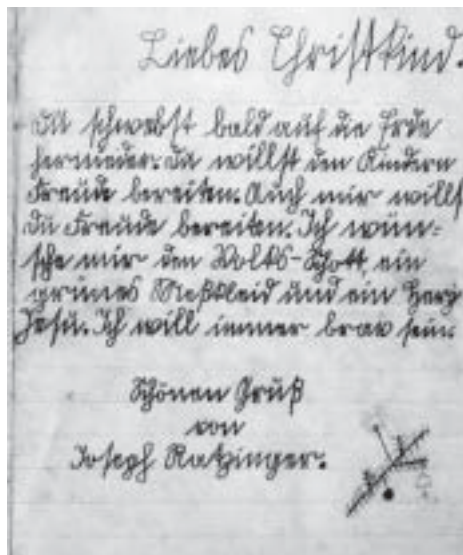 Liebes Christkind.
Du schwebst bald auf die Erde
hernieder. Du willst den Kindern
Freude bereiten. Auch mir willst
Du Freude bereiten. Ich wün-
sche mir den Volks-Schott, ein
grünes Meßkleid und ein Herz
Jesu. Ich will immer brav sein.
Schönen Gruß
von
Joseph Ratzinger.